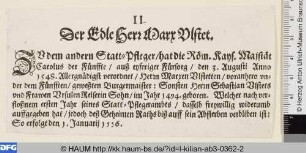 II.
Der Edle Herr Marx Ulstet.
ZU dem andern Statt-Pfleger / hat die Röm. Kays. Majestät
Carolus der Fünffte / auß eyferiger Fürsorg / den 3. Augusti Anno
1548. Allergnädigst verordnet / Herrn Marxen Ulstetten / voranhero
der dem Fünfften / gewesten Burgermaister : Sonsten Herrn Sebastian Ulstets
und Frawen Ursulen Reiserin Sohn / im Jahr 1494. geboren. Welcher nach ver-
floßnem ersten Jahr seines Statt-Pflegerambts / dasselb freywillig widerumb
auffgegeben hat / jedoch deß Geheimen Raths biß auff sein Absterben verbliben ist:
So erfolgt den 1. Januarij 1556.
© HAUM http://kk.haum-bs.de/?id=l-kilian-ab3-0362-2
© Herzog Anton Ulrich-Museum Braunschweig
DFG